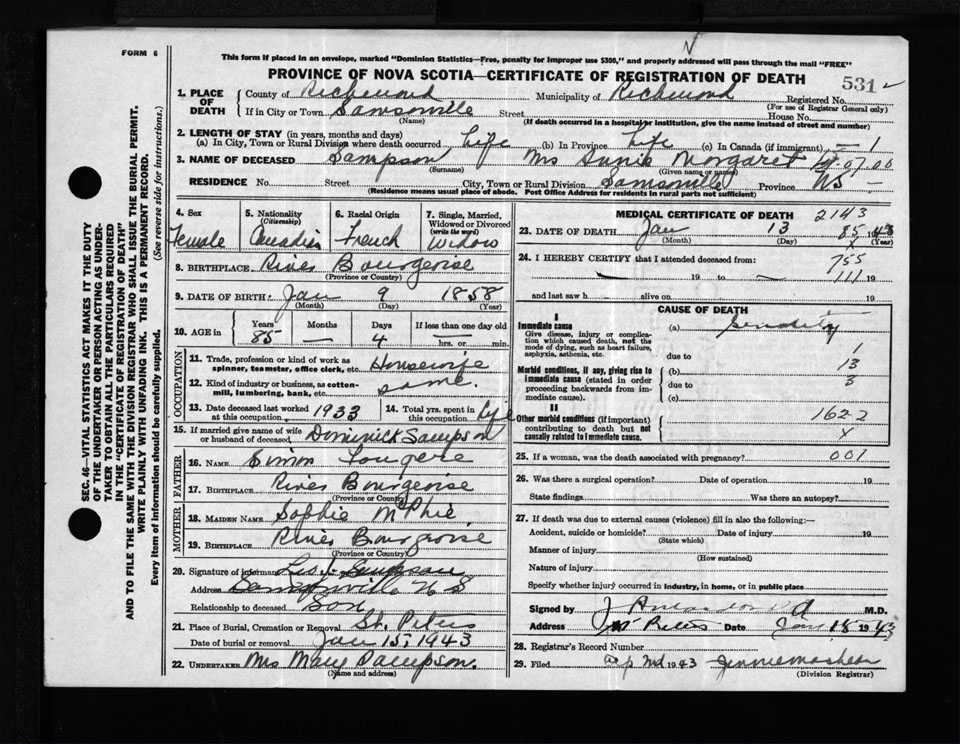 FORM 6
This form if placed in an envelope, marked "Dominion Statistics—Free, penalty for improper use $300," and properly addressed will pass through the mail "FREE"
PROVINCE OF NOVA SCOTIA—CERTIFICATE OF REGISTRATION OF DEATH
531
1. PLACE OF DEATH County of Richmond Municipality of Richmond Registered No.
(For use of Registrar General only)
If in City or Town Samsonville Street House No.
(Name) (If death occurred in a hospital or institution, give the name instead of street and number)
2. LENGTH OF STAY (in years, months and days)
(a) In City, Town or Rural Division where death occurred Life (b) In Province Life (c) In Canada (if immigrant) — 1
3. NAME OF DECEASED Sampson Mrs Annie Margaret 07.00
(Surname) (Given name or names)
RESIDENCE No. Street City, Town or Rural Division Samsonville Province NS —
(Residence means usual place of abode. Post Office Address for residents in rural parts not sufficient)
4. Sex Female
5. Nationality (Citizenship) Canadian
6. Racial Origin French
7. Single, Married, Widowed or Divorced (write the word) Widow
8. BIRTHPLACE River Bourgeoise
(Province or Country)
9. DATE OF BIRTH Jan 9 1858
(Month) (Day) (Year)
10. AGE in Years Months Days If less than one day old
85 — 4 hrs. or min.
OCCUPATION
11. Trade, profession or kind of work as spinner, teamster, office clerk, etc. Housewife
12. Kind of industry or business, as cotton-mill, lumbering, bank, etc. same.
13. Date deceased last worked at this occupation 1933
14. Total yrs. spent in this occupation Life
15. If married give name of wife or husband of deceased Dominick Sampson
FATHER
16. NAME Simon Fougere
17. BIRTHPLACE River Bourgeoise
(Province or Country)
MOTHER
18. MAIDEN NAME Sophie McPhie
19. BIRTHPLACE River Bourgeoise
(Province or Country)
20. Signature of informant Sampson
Address Sampsonville N S
Relationship to deceased Son
21. Place of Burial, Cremation or Removal St. Peters
Date of burial or removal Jan 15, 1943
22. UNDERTAKER Mrs Mary Sampson.
(Name and address)
MEDICAL CERTIFICATE OF DEATH 2143
23. DATE OF DEATH Jan 13 1943
(Month) (Day) (Year)
85 x
24. I HEREBY CERTIFY that I attended deceased from: 755
19 to 111 19
and last saw h alive on 19
CAUSE OF DEATH
I
Immediate cause
Give disease, injury or complication which caused death, not the mode of dying, such as heart failure, asphyxia, asthenia, etc.
(a) Senility
due to 1
Morbid conditions, if any, giving rise to immediate cause (stated in order proceeding backwards from immediate cause).
(b) 13
due to 3
(c)
II
Other morbid conditions (if important) contributing to death but not causally related to immediate cause.
162-2
x
25. If a woman, was the death associated with pregnancy? 001
26. Was there a surgical operation? Date of operation 19
State findings Was there an autopsy?
27. If death was due to external causes (violence) fill in also the following:
Accident, suicide or homicide? Date of injury 19
(State which)
Manner of injury
(How sustained)
Nature of injury
Specify whether injury occurred in industry, in home, or in public place
Signed by M.D.
Address St Peters Date Jan 18 1943
28. Registrar's Record Number
29. Filed 1943
(Division Registrar)
SEC. 46—VITAL STATISTICS ACT MAKES IT THE DUTY
OF THE UNDERTAKER OR PERSON ACTING AS UNDER-
TAKER TO OBTAIN ALL THE PARTICULARS REQUIRED
IN THE "CERTIFICATE OF REGISTRATION OF DEATH"
AND TO FILE THE SAME WITH THE DIVISION REGISTRAR WHO SHALL ISSUE THE BURIAL PERMIT.
WRITE PLAINLY WITH UNFADING INK. THIS IS A PERMANENT RECORD.
Every item of information should be carefully supplied. (See reverse side for instructions.)